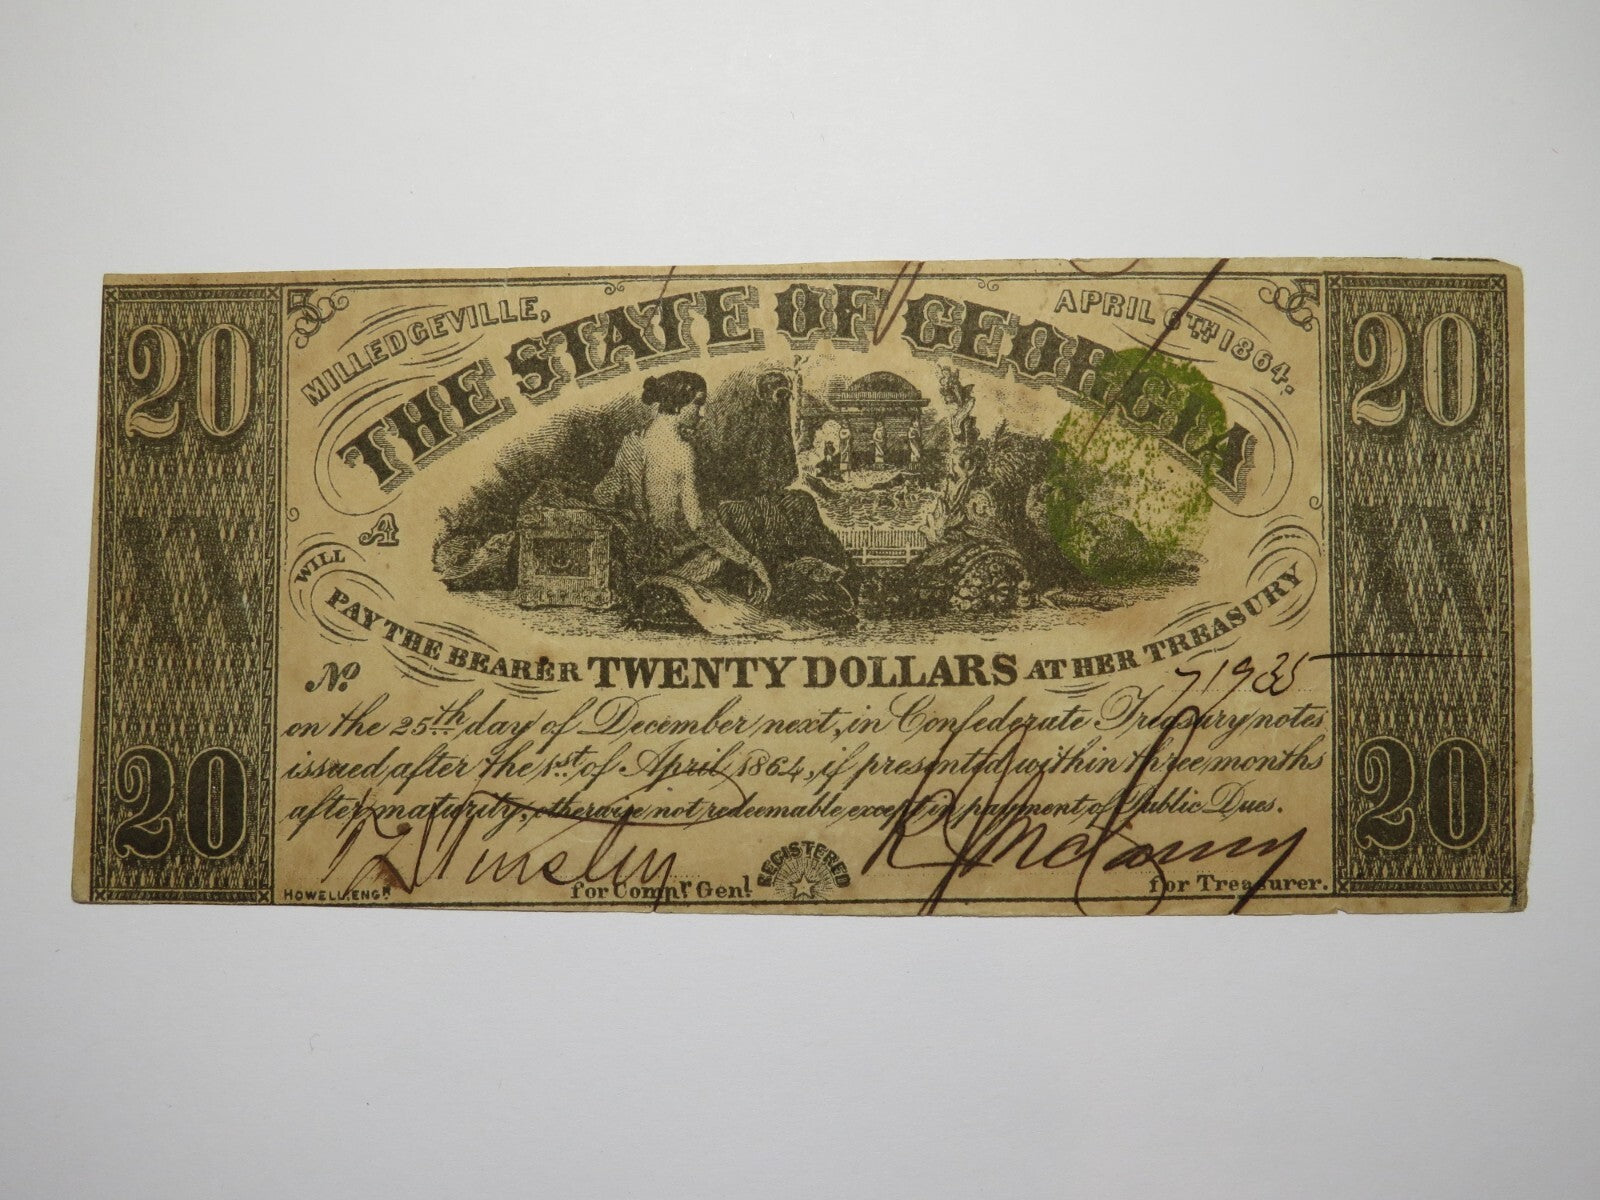 20 20
MILLEDGEVILLE, APRIL 6TH 1864.
THE STATE OF GEORGIA
A
XX XX
WILL
PAY THE BEARER TWENTY DOLLARS AT HER TREASURY
No. 71935
on the 25th day of December next, in Confederate Treasury notes
issued after the 1st of April 1864, if presented within three months
after maturity, otherwise not redeemable except in payment of Public Dues.
20 20
REGISTERED
HOWELL, ENGR. for Compr. Genl. for Treasurer.